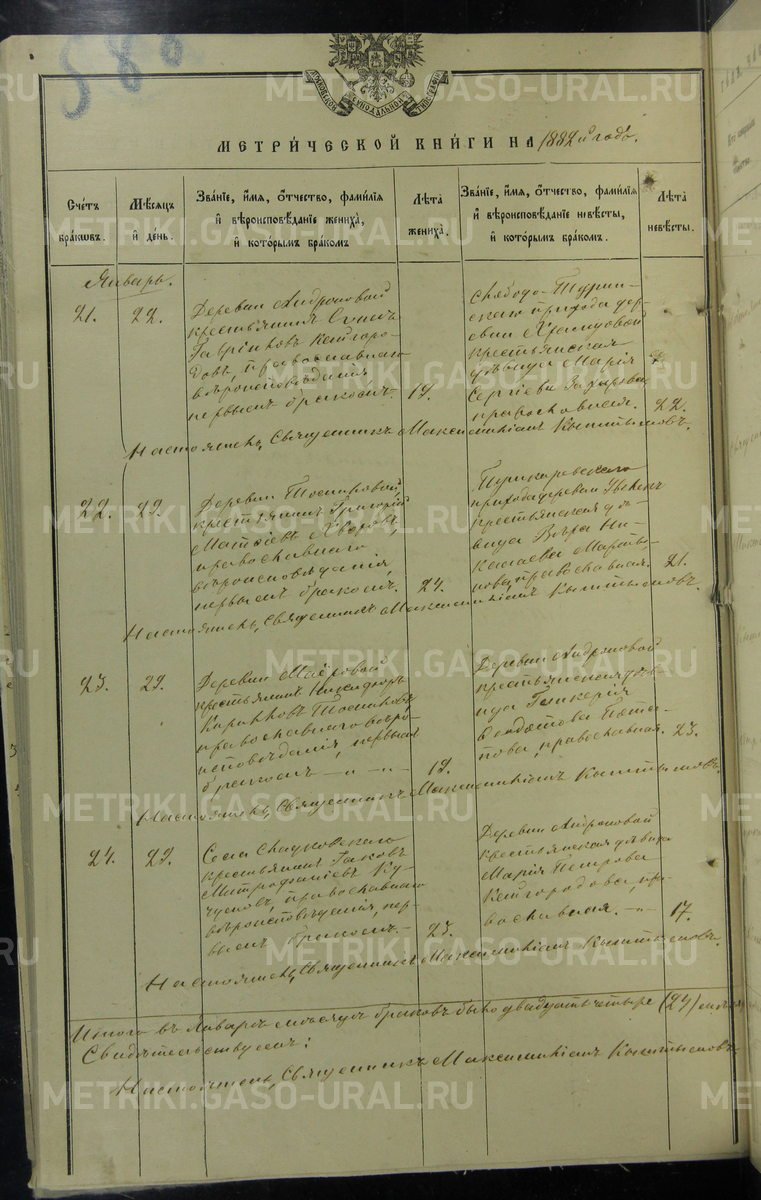 588
МЕТРИ́ЧЕСКОЙ КНИ́ГИ НА 1882й годъ.
Сче́тъ бра́ковъ.
Мѣ́сяцъ и҆ де́нь.
Зва́нїе, и҆́мя, ѻ҆́тчество, фами́лїя и҆ вѣроисповѣ́данїе жениха̀, и҆ кото́рымъ бра́комъ
Лѣта̀ жениха̀.
Зва́нїе, и҆́мя, ѻ҆́тчество, фами́лїя и҆ вѣроисповѣ́данїе невѣ́сты, и҆ кото́рымъ бра́комъ.
Лѣта̀ невѣ́сты.
Январь.
21.
22.
Деревни Андроновой
крестьянинъ
Гавриловъ Кайгоро-
довъ, православнаго
вѣроисповѣданія
первымъ бракомъ.
19.
Слободо-Турин-
скаго прихода дер-
евни
крестьянская
дѣвица Марія
Сергіева
православная.
22.
Настоятель, Священникъ Максимиліанъ Кыштымовъ.
22.
29.
Деревни
крестьянинъ Григорій
Матѳіевъ
православнаго
вѣроисповѣданія,
первымъ бракомъ.
24.
Пушкаревскаго
прихода деревни
крестьянская дѣ-
вица Вѣра Ни-
колаева Марты-
нова, православная.
21.
Настоятель, Священникъ Максимиліанъ Кыштымовъ.
23.
29.
Деревни
крестьянинъ Никифоръ
Кирилловъ
православнаго вѣро-
исповѣданія, первымъ
бракомъ — „ — „ —
19.
Деревни Андроновой
крестьянская дѣв-
ица Гликерія
Пота-
пова, православная.
23.
Настоятель, Священникъ Максимиліанъ Кыштымовъ.
24.
29.
Села
крестьянинъ Іаковъ
Митрофаніевъ
православнаго
вѣроисповѣданія, пер-
вымъ бракомъ. —
23.
Деревни Андроновой
крестьянская дѣвица
Марія Петрова
Кайгородова, пра-
вославная. — „ —
17.
Настоятель, Священникъ Максимиліанъ Кыштымовъ.
Итого въ Январѣ мѣсяцѣ браковъ было двадцать четыре (24)
Свидѣтельствуемъ:
Настоятель, Священникъ Максимиліанъ Кыштымовъ
METRIKI.GASO-URAL.RU